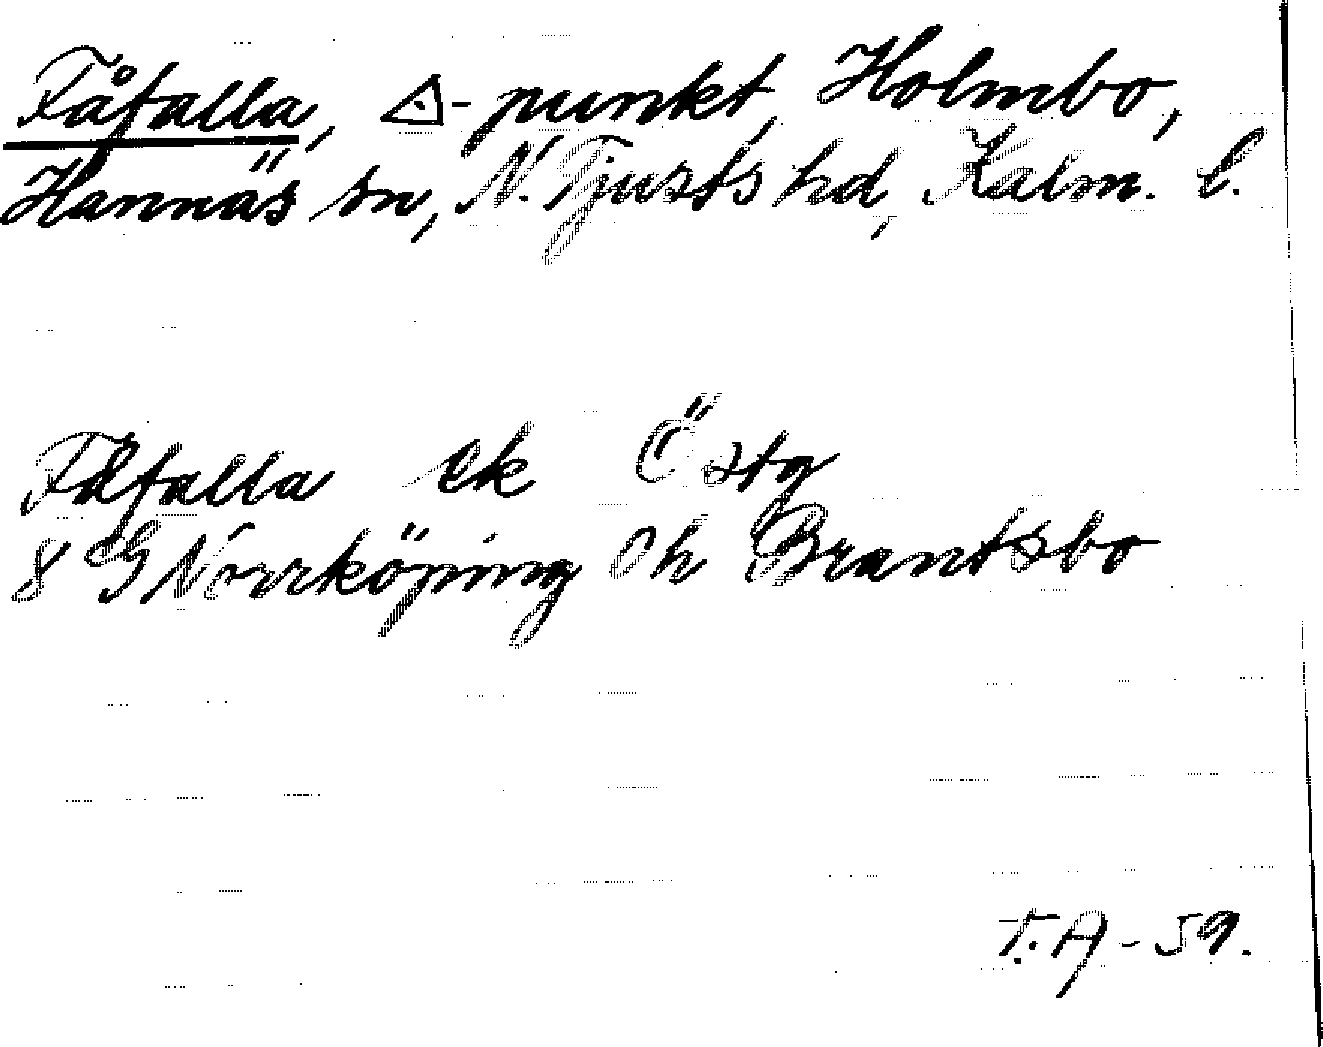 Fåfalla, △-punkt, Holmbo,
Hannäs sn, N. Tjusts hd, Kalm. l.
Fåfalla ek Östg
8 G Norrköping Oh Brantsbo
T.A-59.